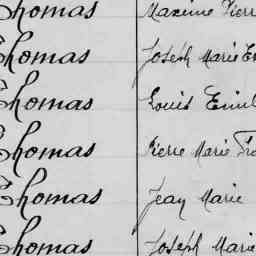 Thomas Maxime Pierr
Thomas Joseph Marie E
Thomas Louis Emil
Thomas Pierre Marie Fra
Thomas Jean Marie
Thomas Joseph Marie